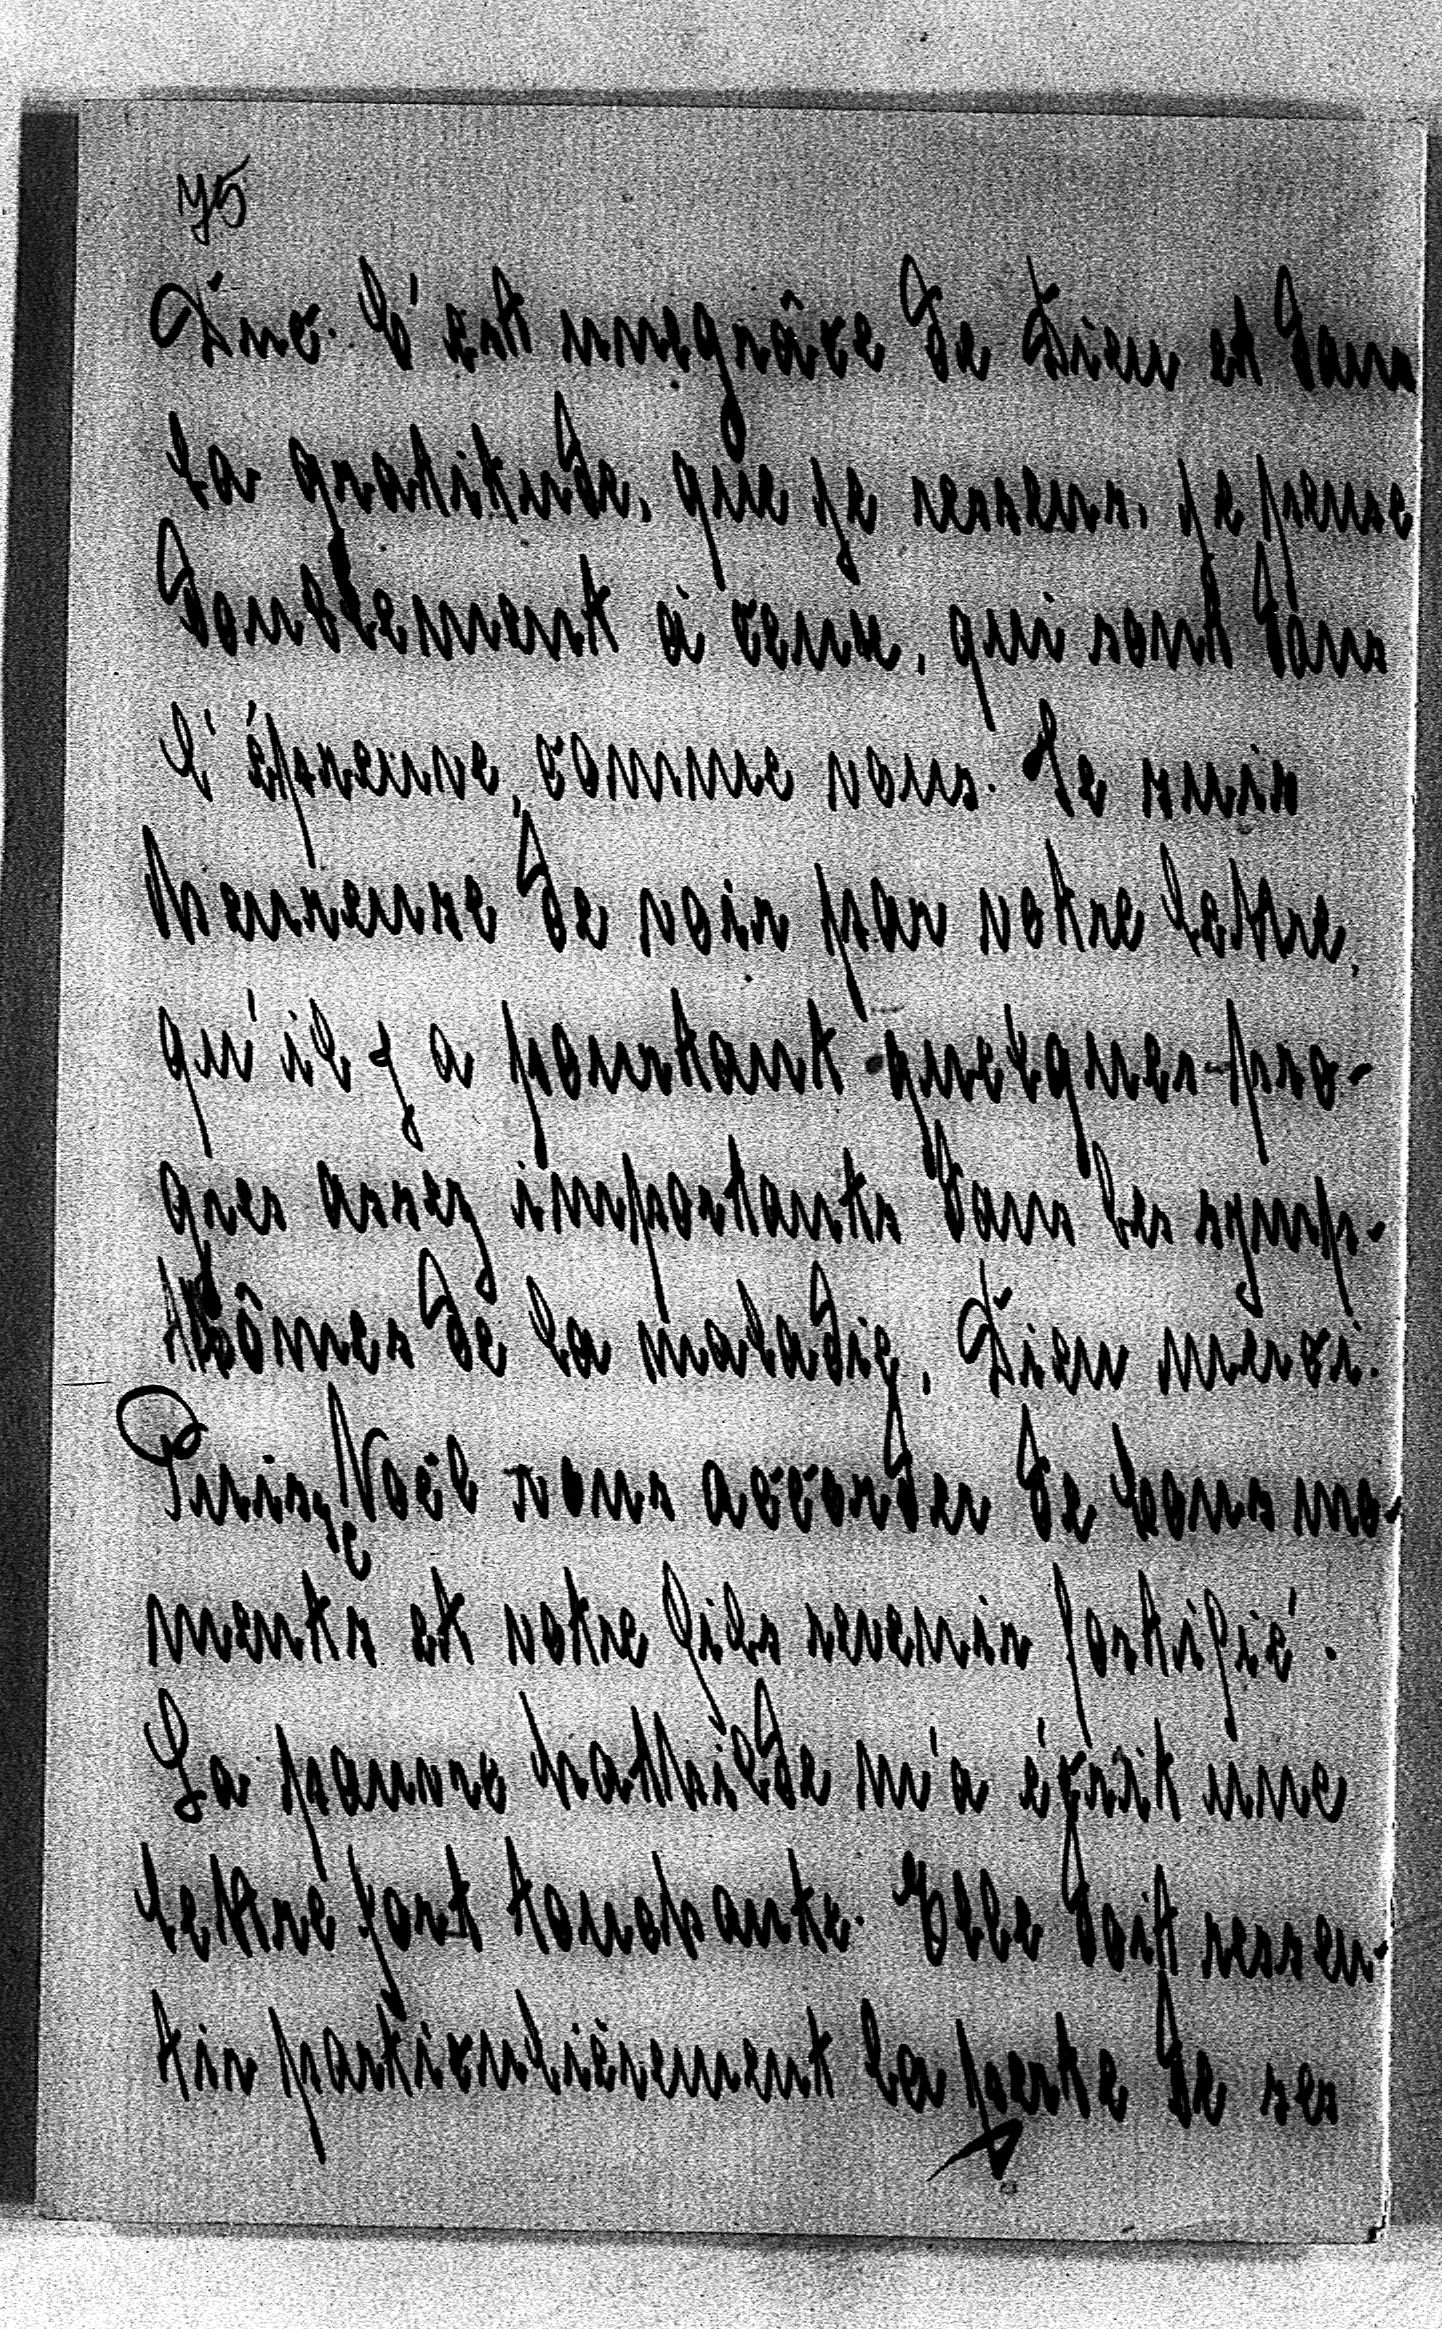 75
Duc. C'est une grâce de Dieu et dans
la gratitude, que je ressens, je pense
doublement à ceux, qui sont dans
l'épreuve, comme vous. Je suis
heureuse de voir par votre lettre,
qu'il y a pourtant quelques pro-
gres assez importants dans les symp-
thômes de la maladie, Dieu merci.
Puisse Noël vous accorder de bons mo-
ments et votre fils revenir fortifié.
La pauvre Mathilde m'a écrit une
lettre fort touchante. Elle doit ressen-
tir particulièrement la perte de ses